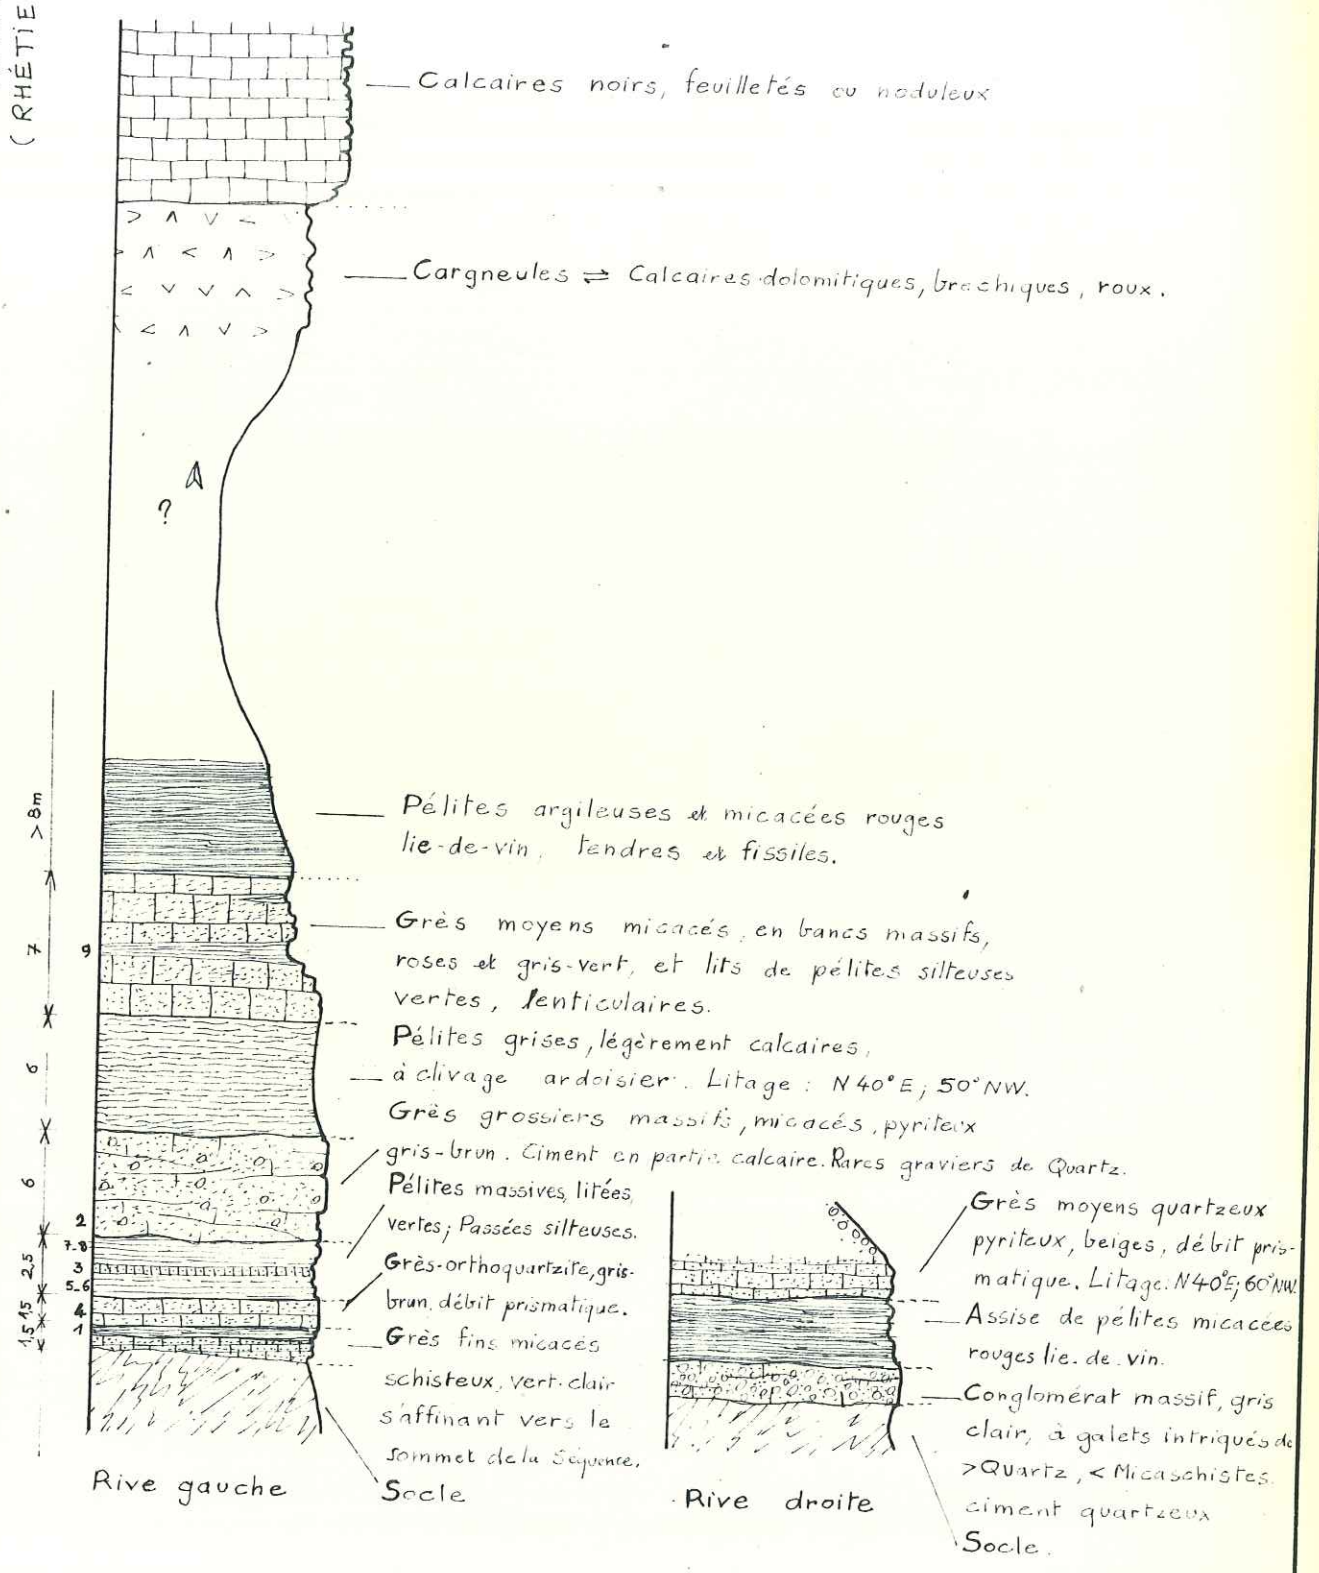 (RHÉTIE
Calcaires noirs, feuilletés ou noduleux
Cargneules ⇌ Calcaires-dolomitiques, brechiques, roux.
?
>8m
Pélites argileuses et micacées rouges
lie-de-vin, tendres et fissiles.
7
9
Grès moyens micacés, en bancs massifs,
roses et gris-vert, et lits de pélites silteuses
vertes, lenticulaires.
6
Pélites grises, légèrement calcaires,
à clivage ardoisier. Litage : N40°E; 50°NW.
6
2
Grès grossiers massifs, micacés, pyriteux
gris-brun. Ciment en partie calcaire. Rares graviers de Quartz.
2,5
7-8
3
5-6
Pélites massives, litées,
vertes; Passées silteuses.
1,5
4
Grès-orthoquartzite, gris-
brun, débit prismatique.
1,5
1
Grès fins micacés
schisteux, vert-clair
s'affinant vers le
sommet de la Séquence.
Socle
Rive gauche
Grès moyens quartzeux
pyriteux, beiges, débit pris-
matique. Litage: N40°E; 60°NW.
Assise de pélites micacées
rouges lie. de. vin.
Conglomérat massif, gris
clair, à galets intriqués de
>Quartz, < Micaschistes.
ciment quartzeux
Socle.
Rive droite